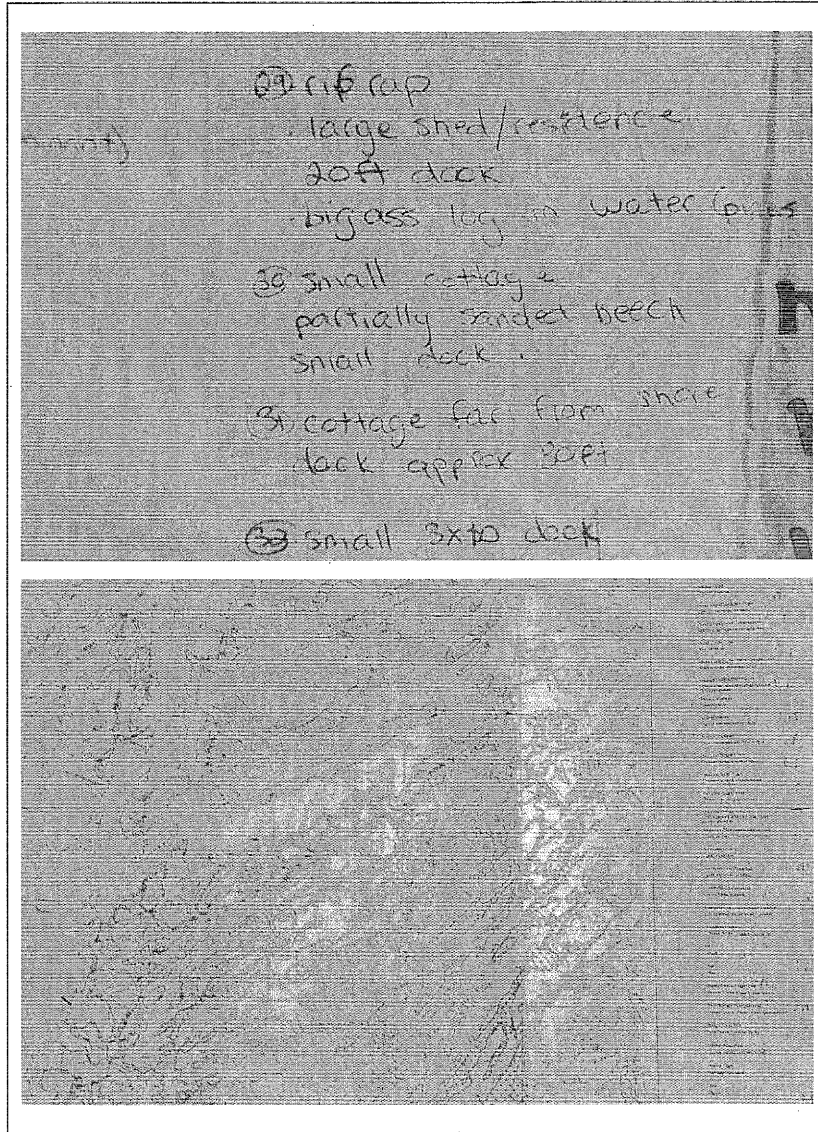 (29) rip rap
large shed/residence
20ft dock
bigass log in water (pines
(30) small cottage
partially sanded beech
small dock.
(31) cottage far from shore
dock approx 30ft
small 3x10 dock